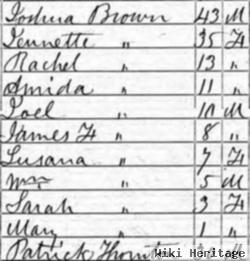 Joshua Brown 43 M
Jennette " 35 F
Rachel " 13 "
Amida " 11 "
Joel " 10 M
James F " 8 "
Susana " 7 F
Wm " 5 M
Sarah " 3 F
Mary " 1 "
Patrick
Wiki Heritage